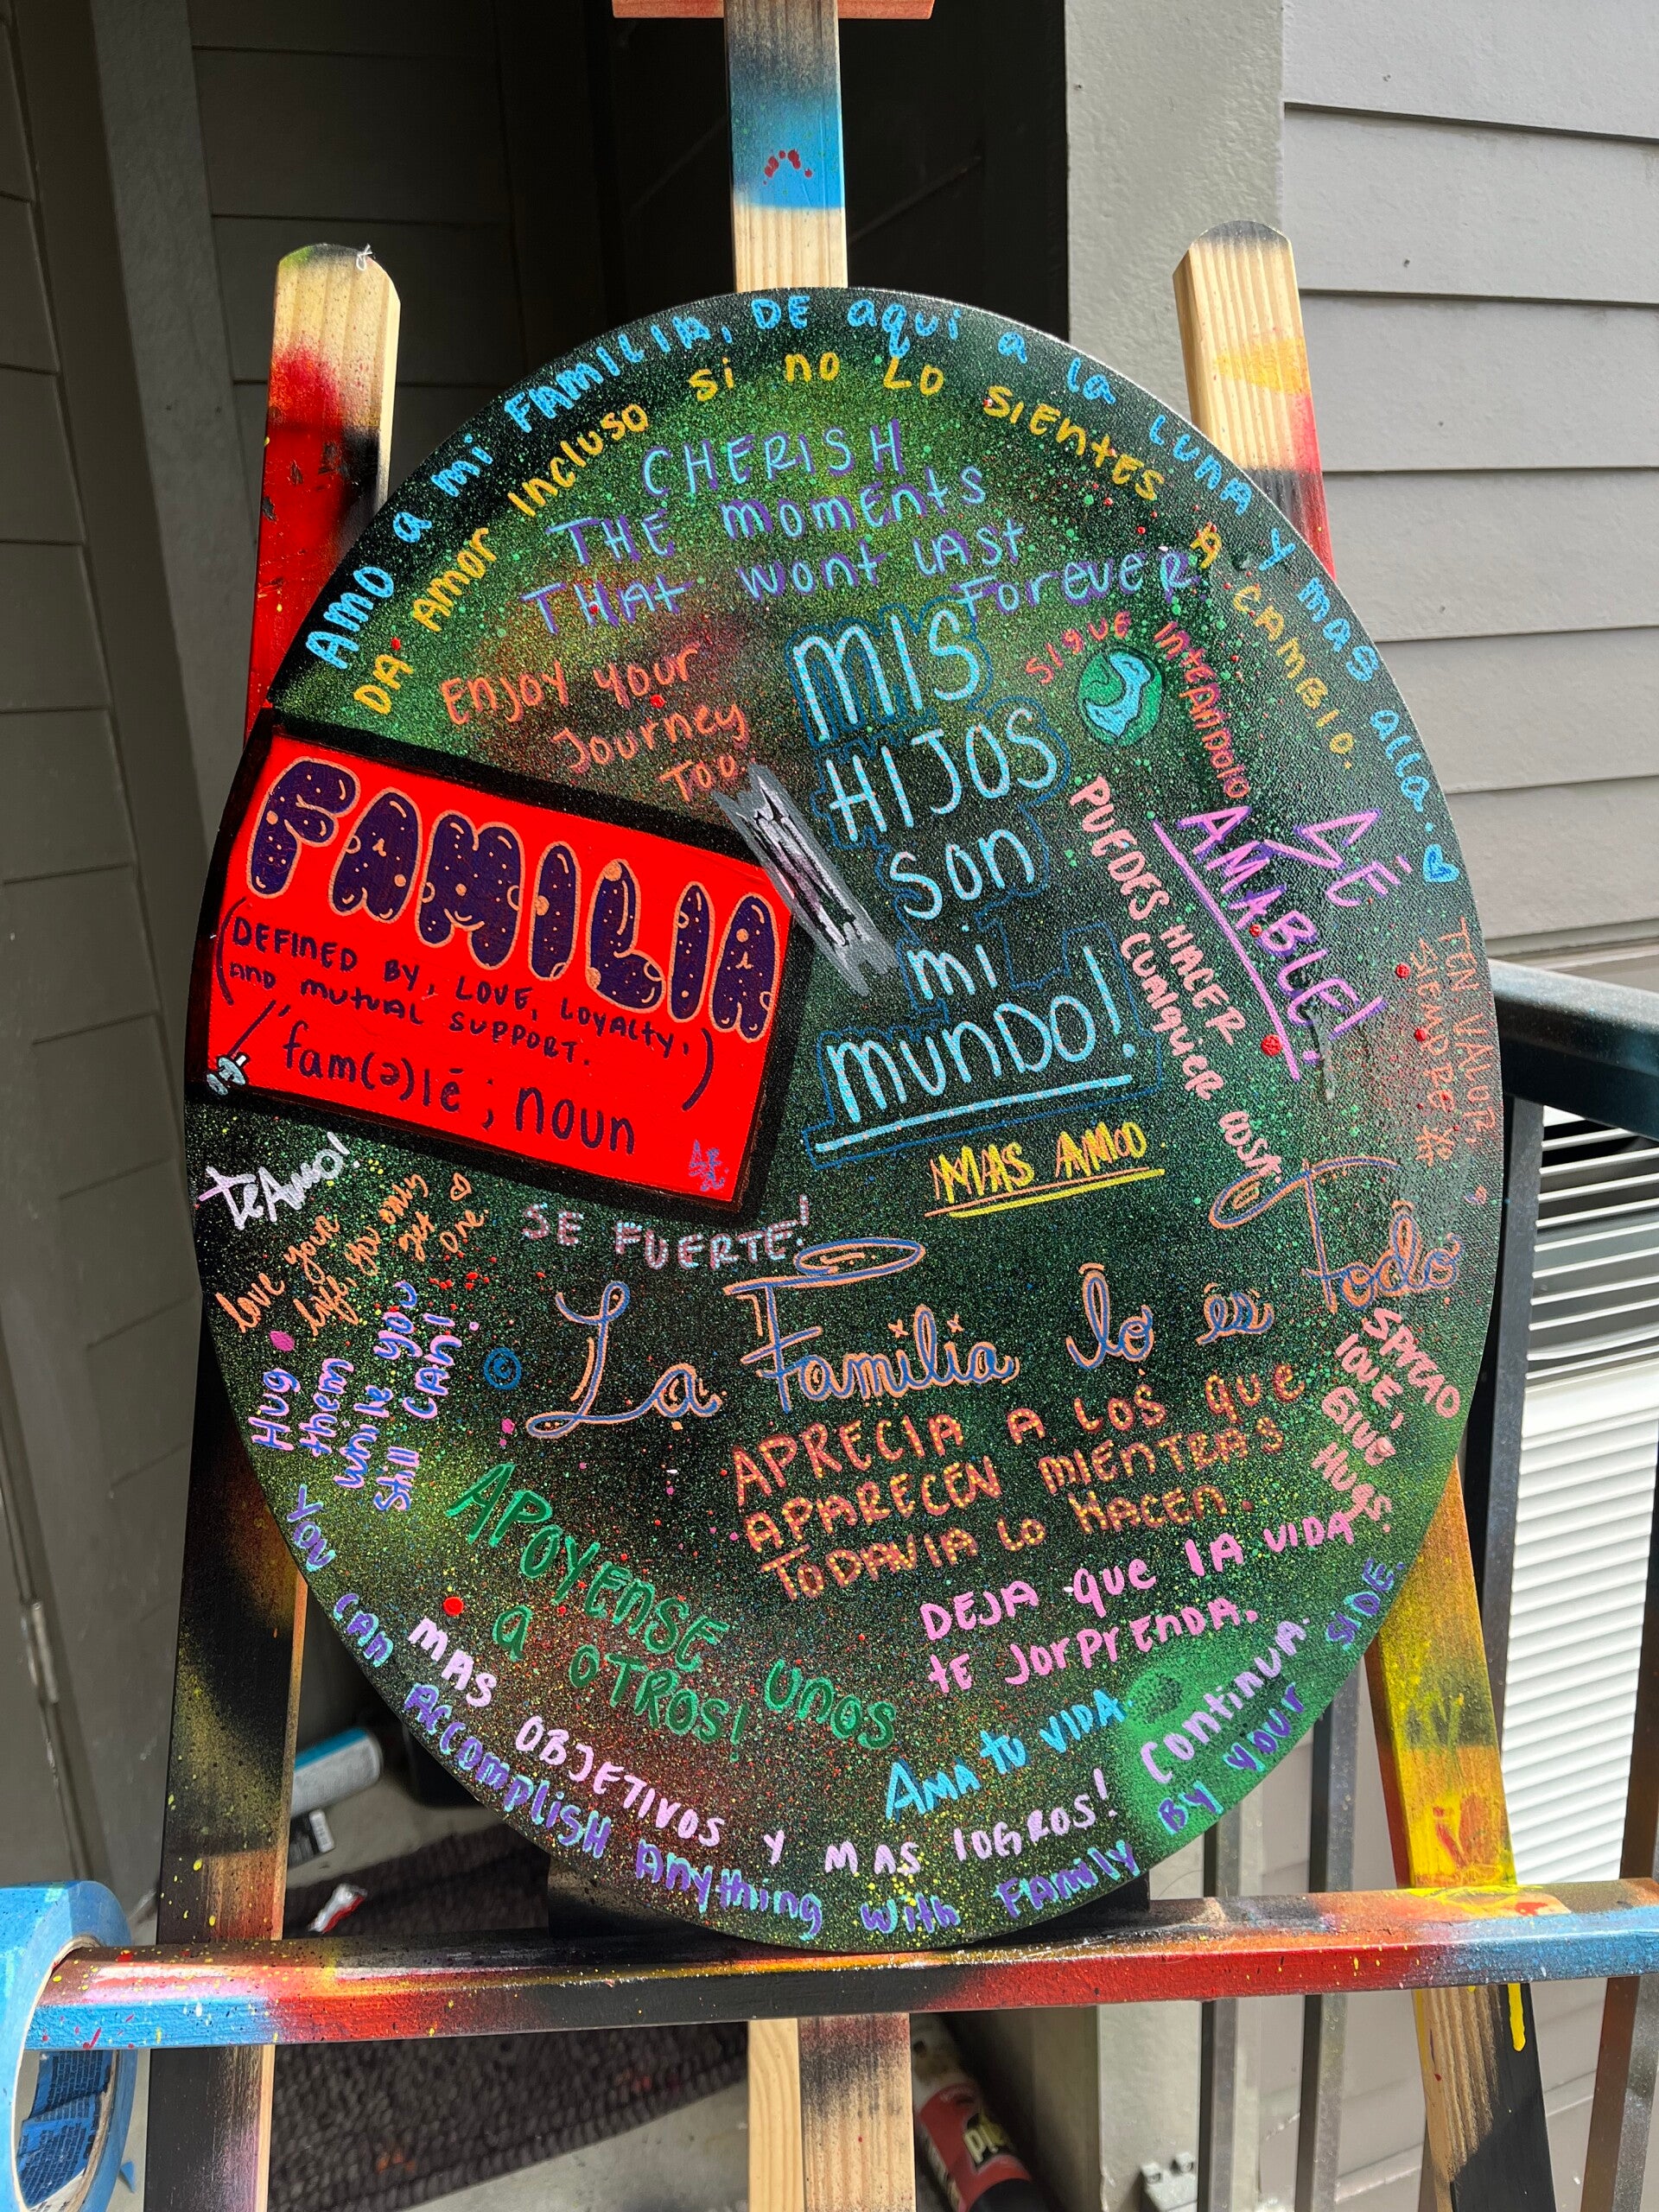 AMO a mi FAMILIA, DE aquí a la LUNA y mas allá.
DA AMOR INCLUSO si no LO SIENTES A CAMBIO.
CHERISH
THE moments
THAt wont LASt
Forever
Enjoy your
Journey
Too
MIS
HIJOS
son
mi
mundo!
SIGUE INTEANDOlO
PUEDES HACER
CUNQUIER COSA
SÉ
AMABLE!
TEN VALOR,
SIEMPRE
FAMILIA
(DEFINED BY, LOVE, LOYALTY,
AND MUTUAL SUPPORT.)
'fam(ə)lē ; noun
teAmo!
love your
life, you only
get
one.
MAS AMOO
SE FUERTE!
La Familia lo es Todo
Hug
them
while you
still CAN!
SPREAD
LOVE,
GIVE
HUGS.
APRECIA A LOS QUE
APARECEN MIENTRAS
TODAVIA LO HACEN
APOYENSE UNOS
a OTROS!
DEJA que lA VIDA
te SORPrENDA.
AMA tu VIDA
MAS OBJETIVOS Y MAS lOGROS! Continua.
YOU CAN ACCOMPLISH ANYthing with FAMILY BY YOUR SIDE.